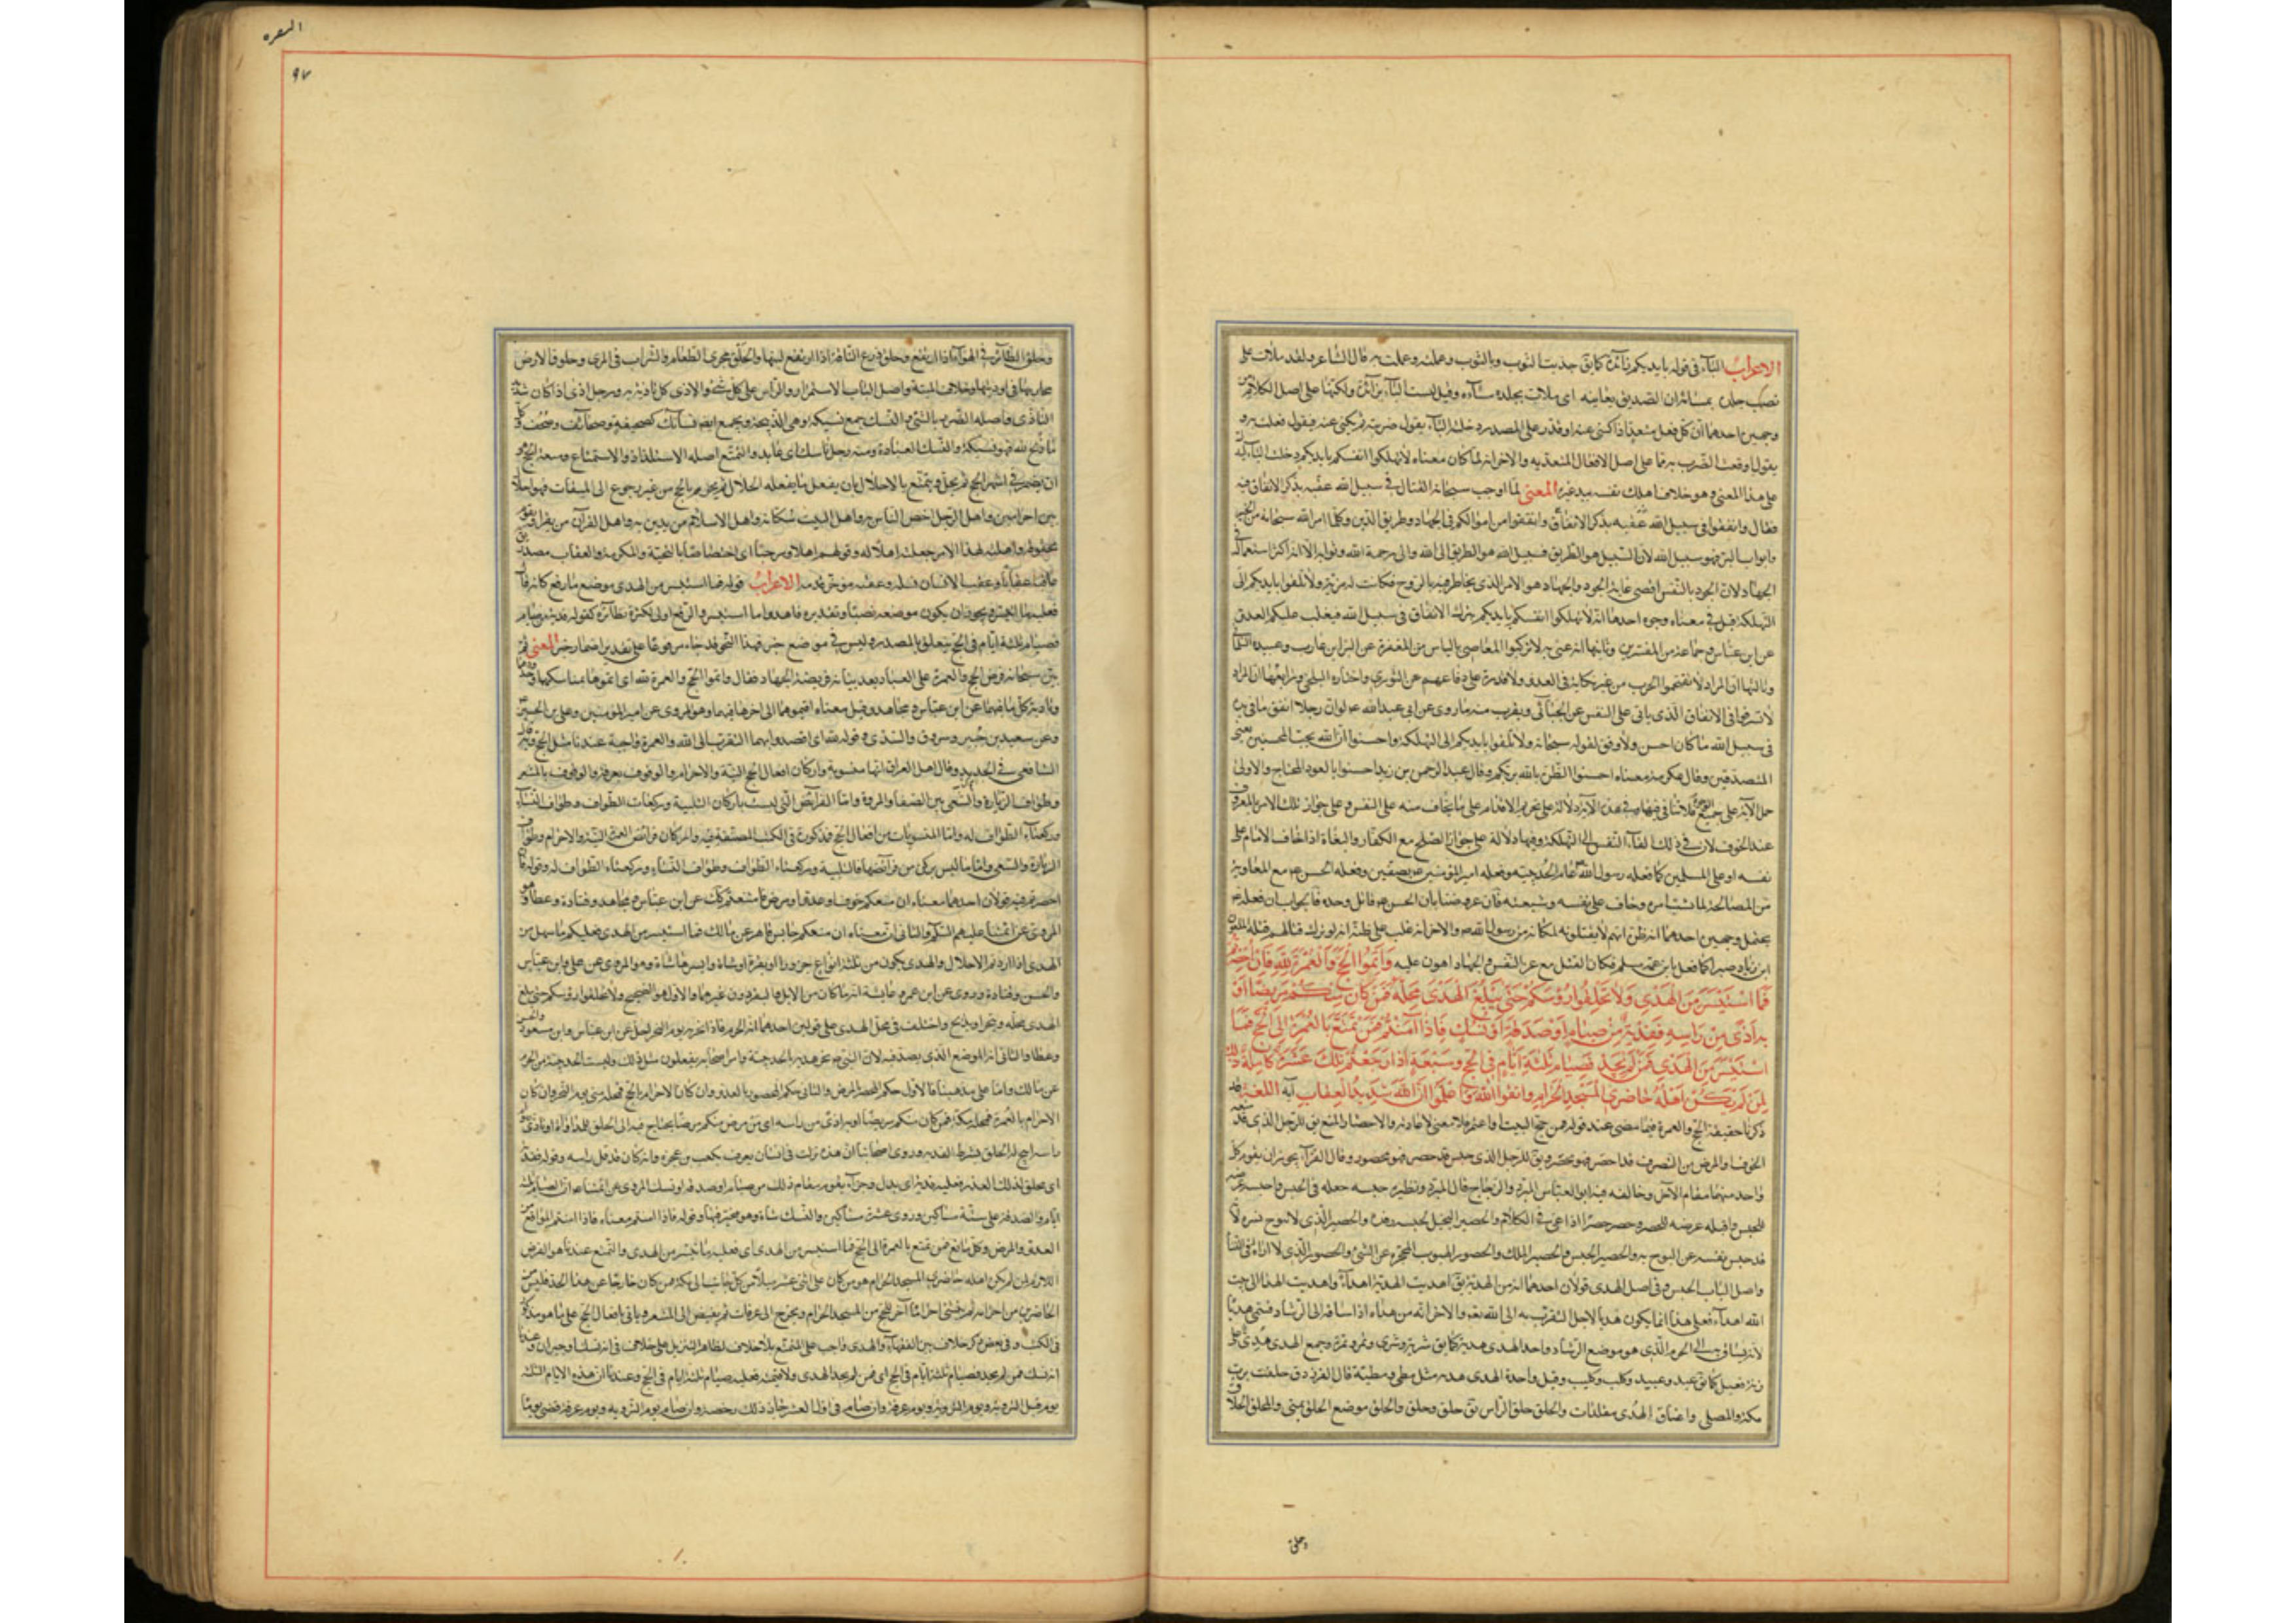 الاعراب الباء في قوله بايديكم زائدة كما يق جذبت الثوب وبالثوب وعلمته وعلمت به قال الشاعر ولقد ملات على
نصيب جلده بمسائتر ان الصديق يعاتبه اى ملات جلده مساءة وقيل ليست الباء بزائدة ولكنها على اصل الكلام من
وجهين احدهما ان كل فعل متعد اذا كنى عنه او قدر على المصدر دخلته الباء يقول ضربته ثم يكنى عنه فيقول فعلت به و
يقول اوقعت الضرب به فجاء على اصل الافعال المتعدية والاخر انه لما كان معناه لا تهلكوا انفسكم بايديكم دخلت الباء ليدل
على هذا المعنى وهو خلاف اهلك نفسه بيد غيره المعنى لما اوجب سبحانه القتال في سبيل الله عقبه بذكر الانفاق فيه
فقال وانفقوا في سبيل الله وانفقوا من اموالكم في الجهاد وطريق الدين وكلما امر الله سبحانه من الخير
وابواب البر فهو سبيل الله لان السبيل هو الطريق فسبيل الله هو الطريق الى الله والى رحمة الله وثوابه الا انه اكثر استعماله في
الجهاد لان الجود بالنفس اقصى غاية الجود والجهاد هو الامر الذى يخاطر فيه بالروح فكانت له مزية ولا تلقوا بايديكم الى
التهلكة قيل في معناه وجوه احدها انه لا تهلكوا انفسكم بايديكم بترك الانفاق في سبيل الله فيغلب عليكم العدو
عن ابن عباس وجماعة من المفسرين وثانيها انه عنى به لا تركبوا المعاصى بالياس من المغفرة عن البراء بن عازب وعبيدة السلمانى
وثالثها ان المراد لا تقتحموا الحرب من غير نكاية في العدو ولا قدرة على دفاعهم عن الثورى واختاره البلخى ورابعها ان المراد
لا تسرفوا في الانفاق الذى ياتى على النفس عن الجبائى ويقرب منه ما روى عن ابى عبد الله ع لو ان رجلا انفق ما في يديه
في سبيل الله ما كان احسن ولا وفق لقوله سبحانه ولا تلقوا بايديكم الى التهلكة واحسنوا ان الله يحب المحسنين يعنى
المتصدقين وقال عكرمة معناه احسنوا الظن بالله يبركم وقال عبد الرحمن بن زيد احسنوا بالعود على المحتاج والاولى
حمل الآية على جميع الوجوه فلا تنافى فيها وفي هذه الآية دلالة على تحريم الاقدام على ما يخاف منه على النفس وعلى جواز ترك الامر بالمعروف
عند الخوف لان في ذلك القاء النفس الى التهلكة وفيها دلالة على جواز الصلح مع الكفار والبغاة اذا خاف الامام على
نفسه او على المسلمين كما فعله رسول الله عام الحديبية وفعله امير المؤمنين ع بصفين وفعله الحسن ع مع المعاوية
من المصالحة لما تشتت امره وخاف على نفسه وشيعته فان عورضنا بان الحسين ع قاتل وحده فالجواب ان فعله
يحتمل وجهين احدهما انه ظن انهم لا يقتلونه لمكانه من رسول الله ص والاخر انه غلب على ظنه انه لو ترك قتالهم قتله الملعون
ابن زياد صبرا كما فعل بابن عمه مسلم فكان القتل مع عز النفس والجهاد اهون عليه وَاَتِمُّوا الْحَجَّ وَالْعُمْرَةَ لِلّهِ فَاِنْ اُحْصِرْتُمْ
فَمَا اسْتَيْسَرَ مِنَ الْهَدْيِ وَلَا تَحْلِقُوا رُؤُسَكُمْ حَتّى يَبْلُغَ الْهَدْيُ مَحِلَّهُ فَمَنْ كَانَ مِنْكُمْ مَرِيضًا اَوْ
بِهِ اَذًى مِنْ رَاْسِهِ فَفِدْيَةٌ مِنْ صِيَامٍ اَوْ صَدَقَةٍ اَوْ نُسُكٍ فَاِذَا اَمِنْتُمْ فَمَنْ تَمَتَّعَ بِالْعُمْرَةِ اِلَى الْحَجِّ فَمَا
اسْتَيْسَرَ مِنَ الْهَدْيِ فَمَنْ لَمْ يَجِدْ فَصِيَامُ ثَلثَةِ اَيَّامٍ فِي الْحَجِّ وَسَبْعَةٍ اِذَا رَجَعْتُمْ تِلْكَ عَشَرَةٌ كَامِلَةٌ ذلِكَ
لِمَنْ لَمْ يَكُنْ اَهْلُهُ حَاضِرِي الْمَسْجِدِ الْحَرَامِ وَاتَّقُوا اللّهَ وَاعْلَمُوا اَنَّ اللّهَ شَدِيدُ الْعِقَابِ آية اللغة قد
ذكرنا حقيقة الحج والعمرة فيما مضى عند قوله فمن حج البيت او اعتمر فلا معنى لاعادته والاحصار المنع يق للرجل الذى قد منعه
الخوف او المرض من التصرف قد احصر فهو محصر ويق للرجل الذى حبس قد حصر فهو محصور وقال الفراء يجوز ان يقوم كل
واحد منهما مقام الآخر وخالفه فيه ابو العباس المبرد والزجاج قال المبرد ونظيره حبسه جعله في الحبس واحبسه عرضه
للحبس واقتله عرضه للقتل وحصر حصرا اذا عى في الكلام والحصير البخيل لحبسه رفده والحصر الذى لا يبوح بسره لانه
قد حبس نفسه عن البوح به والحصير الحبس والحصير الملك والحصور الهيوب المحجم عن الشئ والحصور الذى لا اربة له في النساء
واصل الباب الحبس وفي اصل الهدى قولان احدهما انه من الهدية يق اهديت الهدية اهداء واهديت الهدى الى بيت
الله اهداء فعلى هذا انما يكون هديا لاجل التقرب به الى الله تعه والاخر انه من هداه اذا ساقه الى الرشاد فسمى هديا
لانه يساق الى الحرم الذى هو موضع الرشاد وواحد الهدى هدية كما يق شرية وشرى وتمرة وتمر وجمع الهدى هدى على
زنة فعيل كما يق عبد وعبيد وكلب وكليب وقيل واحدة الهدى هدية مثل مطى ومطية قال الفرزدق حلفت برب
مكة والمصلى واعناق الهدى مقلدات والحلق حلق الراس يق حلق وحلق والحلق موضع الحلق بمنى والمحلق الحلاق
وحلق
البقره
٩٧
وحلق الطائر في الهواء اذا ارتفع وحلق ضرع الناقة اذا ارتفع لبنها والحلق مجرى الطعام والشراب في المرى وحلوق الارض
مجاريها في اوديتها وحلاق المنية واصل الباب الاستمرار والراس اعلى كل شئ والاذى كل ما تاذيت به ورجل اذى اذا كان شديد
التاذى واصله الضرر بالشئ والنسك جمع نسيكة وهى الذبيحة ويجمع ايضا نسائك كصحيفة وصحائف وصحف وكل
ما ذبح لله فهو نسيكة والنسك العبادة ومنه رجل ناسك اى عابد والتمتع اصله الالتذاذ والاستمتاع ومتعة الحج هو
ان يعتمر في اشهر الحج ثم يحل ويتمتع بالاحلال بان يفعل ما يفعله الحلال ثم يحرم بالحج من غير رجوع الى الميقات فهو احلال
بين احرامين واهل الرجل اخص الناس به واهل البيت سكانه واهل الاسلام من يدين به واهل القرآن من يقراه ويقوم
بحقوقه واهلته لهذا الامر جعلته اهلا له وقولهم اهلا ومرحبا اى اختصاصا بالتحية والتكرمة والعقاب مصدر يق
عاقبه عقابا وعقب الانسان نسله وعقبه مؤخر قدمه الاعراب قوله فما استيسر من الهدى موضع ما رفع كانه قال
فعليه ما استيسر ويجوز ان يكون موضعه نصبا وتقديره فاهدوا ما استيسر والرفع اولى لكثرة نظائره كقوله ففدية من صيام
فصيام ثلثة ايام في الحج يتعلق بالمصدر وليس في موضع خبر فهذا النحو قد جاء مرفوعا على تقدير اضمار خبر المعنى ثم
بين سبحانه فرض الحج والعمرة على العباد بعد بيانه فريضة الجهاد فقال واتموا الحج والعمرة لله اى اتموهما بمناسكهما وحدودهما
وتادية كل ما فيهما عن ابن عباس ومجاهد وقيل معناه اقيموهما الى اخر ما فيهما وهو المروى عن امير المؤمنين وعلى بن الحسين
وعن سعيد بن جبير ومسروق والسدى وقوله لله اى اقصدوا بهما التقرب الى الله والعمرة واجبة عندنا مثل الحج وبه قال
الشافعى في الجديد وقال اهل العراق انها مسنونة واركان افعال الحج النية والاحرام والوقوف بعرفة والوقوف بالمشعر
وطواف الزيارة والسعى بين الصفا والمروة واما الفرائض التى ليست باركان التلبية وركعتا الطواف وطواف النساء
وركعتا الطواف له واما المسنونات من افعال الحج فمذكورة في الكتب المصنفة فيه واركان فرائض العمرة النية والاحرام وطواف
الزيارة والسعى واما ما ليس بركن من فرائضها فالتلبية وركعتا الطواف وطواف النساء وركعتا الطواف له وقوله فان
احصرتم فيه قولان احدهما معناه ان منعكم خوف او عدو او مرض فامتنعتم لذلك عن ابن عباس ومجاهد وقتادة وعطا وهو
المروى عن ائمتنا عليهم السلام والثانى ان معناه ان منعكم حابس قاهر عن مالك فما استيسر من الهدى فعليكم ما سهل من
الهدى اذا اردتم الاحلال والهدى يكون من ثلثة انواع جزور او بقرة او شاة وايسرها شاة وهو المروى عن على وابن عباس
والحسن وقتادة وروى عن ابن عمر وعايشة انه ما كان من الابل والبقر دون غيرهما والاول هو الصحيح ولا تحلقوا رؤسكم حتى يبلغ
الهدى محله وينحر او يذبح واختلف في محل الهدى على قولين احدهما انه الحرم فاذا ذبح به يوم النحر احل عن ابن عباس وابن مسعود والحسن
وعطا والثانى انه الموضع الذى يصد فيه لان النبى ص نحر هديه بالحديبية وامر اصحابه يفعلون مثل ذلك وليست الحديبية من الحرم
عن مالك واما على مذهبنا فالاول حكم المحصر بالمرض والثانى حكم المحصور بالعدو وان كان الاحرام بالحج فمحله منى يوم النحر وان كان
الاحرام بالعمرة فمحله مكة فمن كان منكم مريضا او به اذى من راسه اى من مرض منكم مرضا يحتاج فيه الى الحلق للمداواة او تاذى بهوام
راسه ابيح له الحلق بشرط الفدية وروى اصحابنا ان هذه نزلت في انسان يعرف بكعب بن عجرة وانه كان قد قمل راسه وقوله ففدية
اى فحلق لذلك العذر فعليه فدية اى بدل وجزاء يقوم مقام ذلك من صيام او صدقة او نسك المروى عن ائمتنا ع ان الصيام ثلثة
ايام والصدقة على ستة مساكين وروى عشرة مساكين والنسك شاة وهو مخير فيها وقوله فاذا امنتم معناه فاذا امنتم الموانع من
العدو والمرض وكل مانع فمن تمتع بالعمرة الى الحج فما استيسر من الهدى اى فعليه ما تيسر من الهدى والتمتع عندنا هو الفرض
اللازم لمن لم يكن اهله حاضرى المسجد الحرام هو من كان على اثنى عشر ميلا من كل جانب الى مكة فمن كان خارجا عن هذا الحد فليس من
الحاضرين من احرامه ثم ينشئ احراما آخر للحج من المسجد الحرام ويخرج الى عرفات ثم يفيض الى المشعر وياتى بافعال الحج على ما هو مذكور
في الكتب وفي بعض ذكر خلاف بين الفقهاء والهدى واجب على المتمتع بلا خلاف لظاهر التنزيل على خلاف في انه نسك او جبران وعندنا
انه نسك فمن لم يجد فصيام ثلثة ايام في الحج اى فمن لم يجد الهدى ولا ثمنه فعليه صيام ثلثة ايام في الحج وعندنا ان هذه الايام الثلثة
يوم قبل التروية ويوم التروية ويوم عرفة وان صام في اول العشر جاز ذلك رخصة وان صام يوم التروية ويوم عرفة قضى يوما